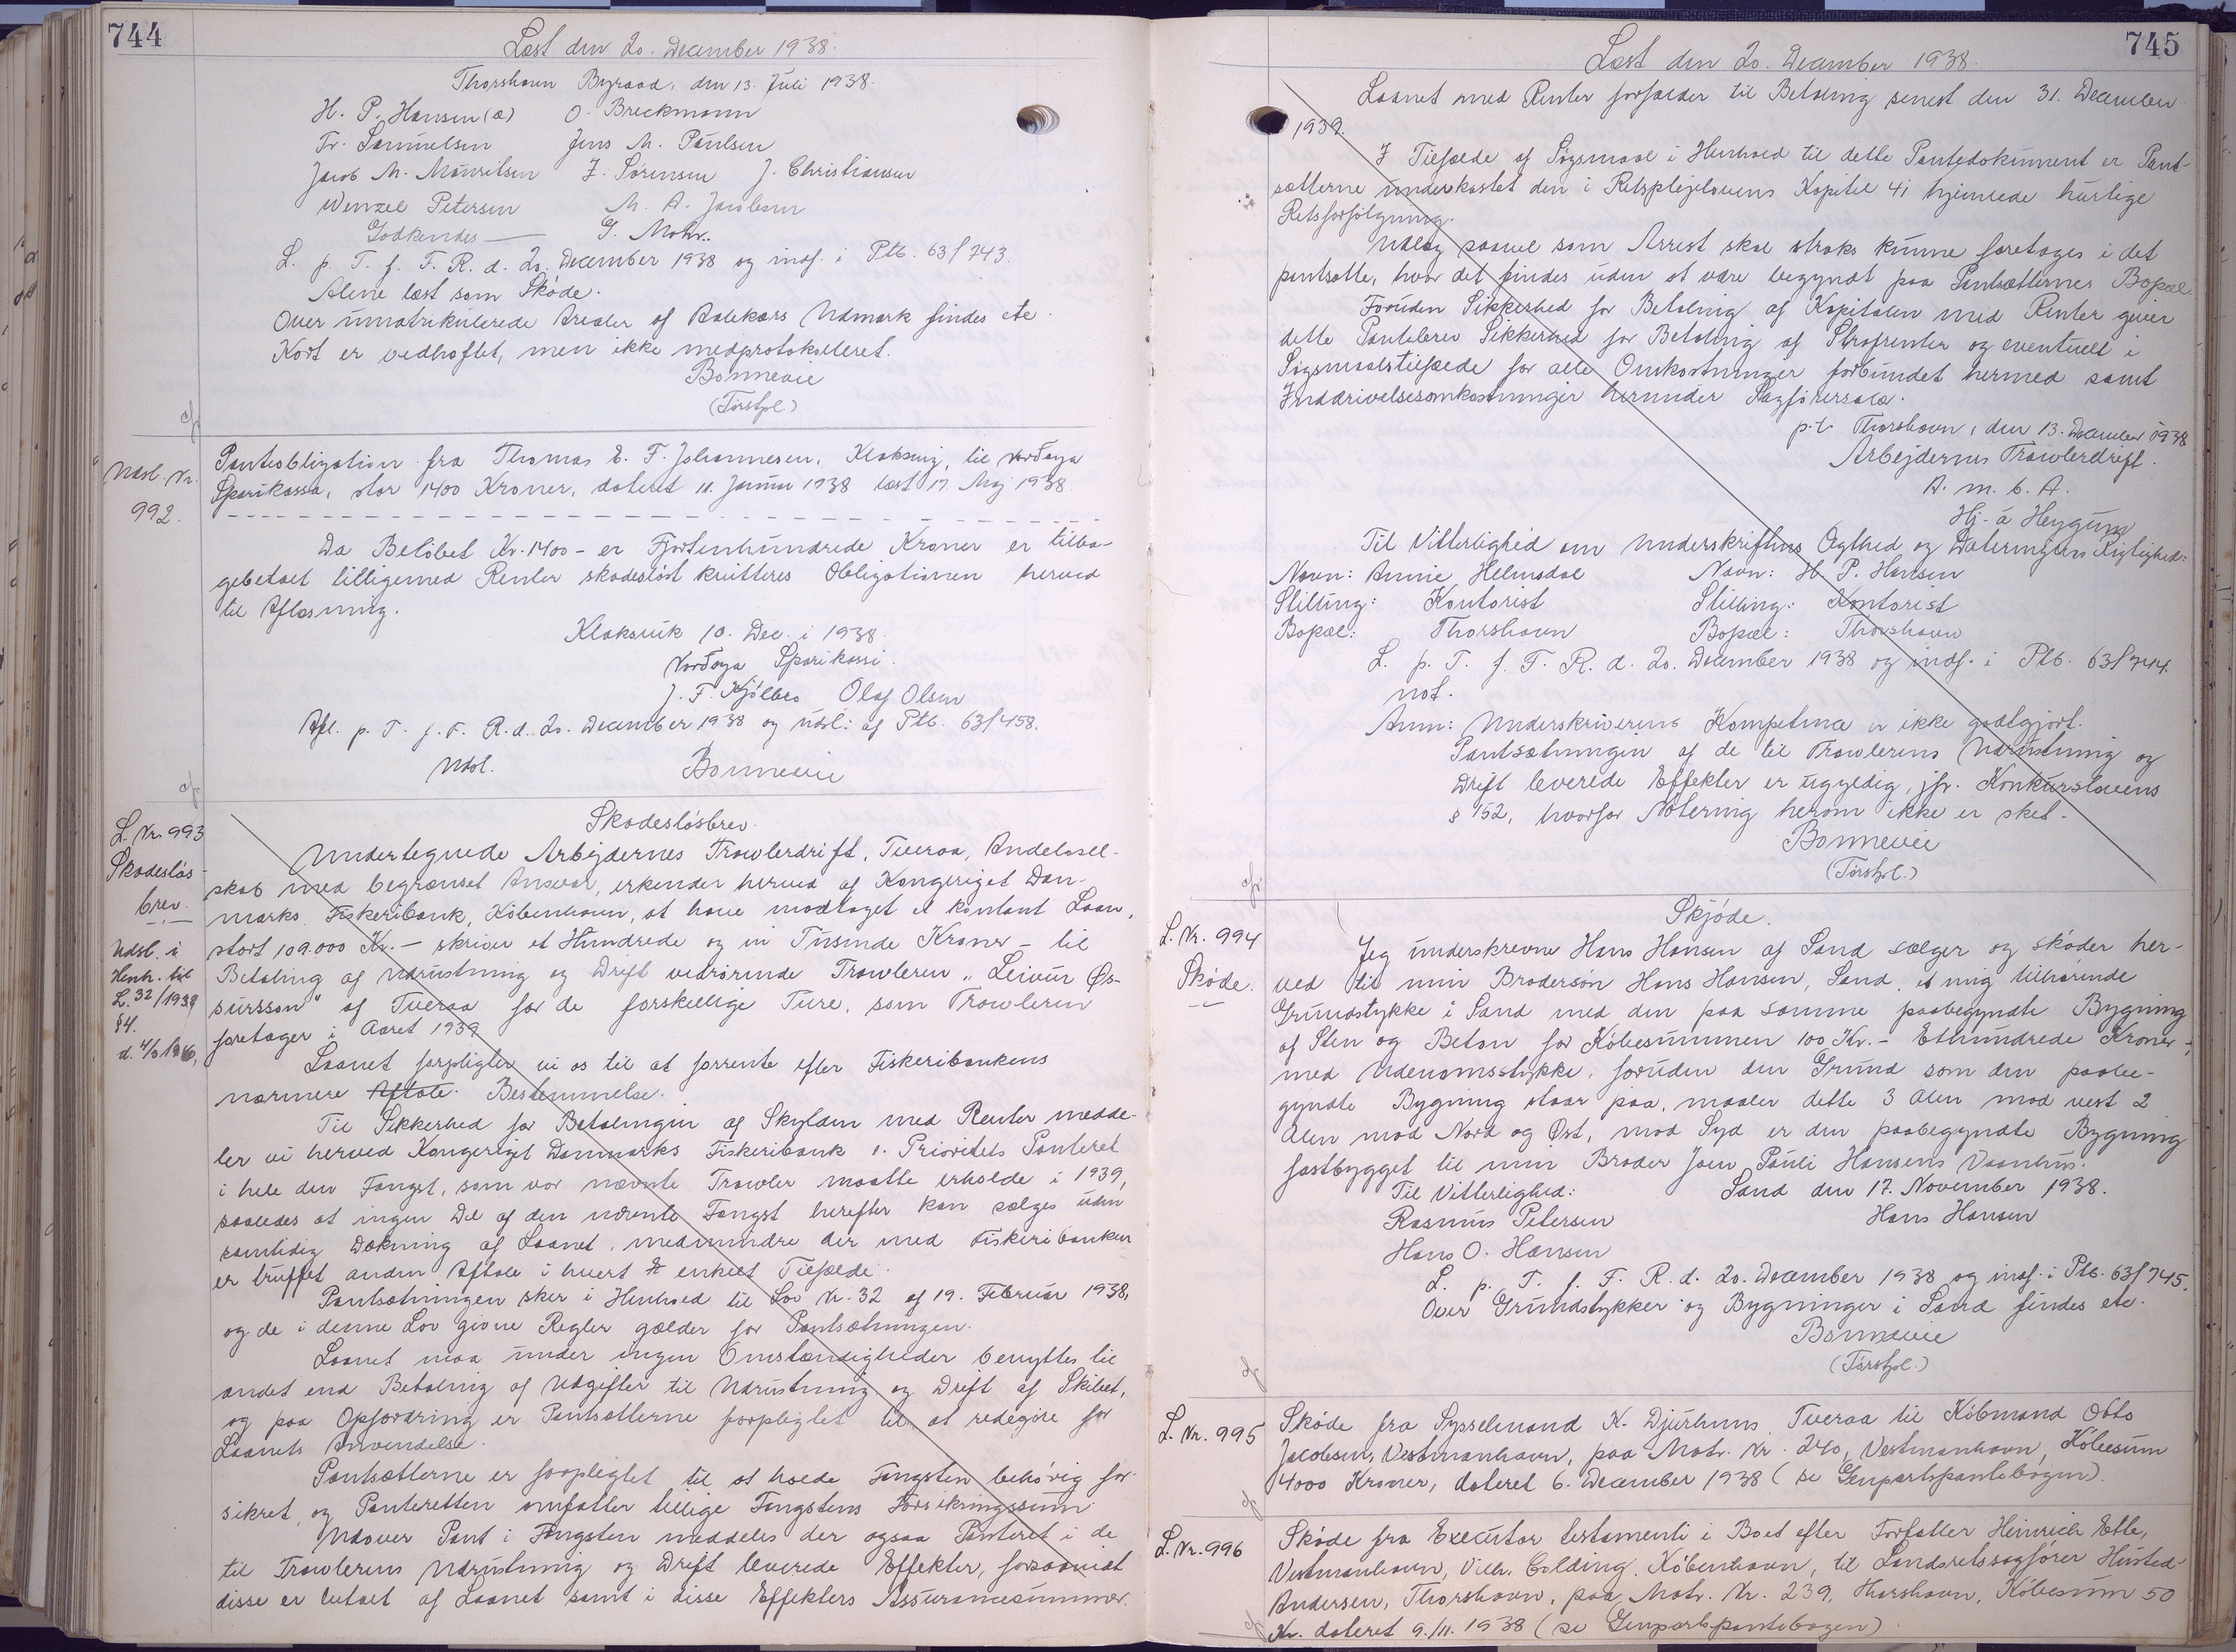 744
Læst den 20. December 1938.
Thorshavn Byraad, den 13. Juli 1938.
H. P. Hansen (a) O. Breckmann
Fr. Samuelsen Jens M. Paulsen
Jacob M. Mouritsen Z. Sörensen J. Christiansen
Wenzel Petersen M. A. Jacobsen
Godkendes — G. Mohr.
L. p. T. f. F. R. d. 20. December 1938 og indf. i Ptb. 63/743.
Alene læst som Sköde.
Over umatrikulerede Arealer af Aalekærs Udmark findes etc.
Kort er vedhæftet, men ikke medprotokolleret.
Bonnevie
(Fórstpl.)
Udsl. Nr.
992.
Pantobligation fra Thomas E. F. Johannesen, Klaksvig, til Norðoya
Sparikassa, stor 1400 Kroner, dateret 11. Januar 1938 læst 17. Maj 1938.
Da Belöbet Kr. 1400 – er Fjortenhundrede Kroner er tilba-
gebetalt tilligemed Renter skadeslöst kvitteres Obligationen herved
til Aflæsning.
Klaksvik 10. Dec. i 1938.
Norðoya Sparikassi.
J. F. Kjölbro Olaf Olsen
Afl. p. T. f. F. R. d. 20. December 1938 og udsl. af Ptb. 63/458.
Udsl. Bonnevie
L. Nr. 993
Skadeslös-
brev.
Udsl. i
Henh. til
L. 32/1938
§4.
Skadeslösbrev.
Undertegnede Arbejdernes Trawlerdrift, Tveraa, Andelssel-
skab med begrænset Ansvar, erkender herved af Kongeriget Dan-
marks Fiskeribank, Köbenhavn, at have modtaget et kontant Laan,
stort 109.000 Kr. – skriver et Hundrede og ni Tusinde Kroner – til
Betaling af Udrustning og Drift vedrörende Trawleren „Leivur Øs-
sursson“ af Tveraa for de forskellige Ture, som Trawleren
foretager i Aaret 1939
Laanet forpligter vi os til at forrente efter Fiskeribankens
nærmere Aftale. Bestemmelse.
Til Sikkerhed for Betalingen af Skylden med Renter medde-
ler vi herved Kongeriget Danmarks Fiskeribank 1. Prioritets Panteret
i hele den Fangst, som vor nævnte Trawler maatte erholde i 1939,
saaledes at ingen Del af den nævnte Fangst herefter kan sælges uden
samtidig Dækning af Laanet, medmindre der med Fiskeribanken
er truffet anden Aftale i hvert enkelt Tilfælde.
Pantsætningen sker i Henhold til Lov Nr. 32 af 19. Februar 1938,
og de i denne Lov givne Regler gælder for Pantsætningen.
Laanet maa under ingen Omstændigheder benyttes til
andet end Betaling af Udgifter til Udrustning og Drift af Skibet,
og paa Opfordring er Pantsætterne forpligtet til at redegöre for
Laanets Anvendelse.
Pantsætterne er forpligtet til at holde Fangsten behörig for-
sikret, og Panteretten omfatter tillige Fangstens Forsikringssum
Udover Pant i Fangsten meddeles der ogsaa Panteret i de
til Trawlerens Udrustning og Drift leverede Effekter, forsaavidt
disse er betalt af Laanet samt i disse Effekters Assurancesummer.
745
Læst den 20. December 1938.
Laanet med Renter forfalder til Betaling senest den 31. December
1939.
I Tilfælde af Sögsmaal i Henhold til dette Pantedokument er Pant-
sætterne underkastet den i Retsplejelovens Kapitel 41 hjemlede hurtige
Retsforfölgning.
Udlæg saavel som Arrest skal straks kunne foretages i det
pantsatte, hvor det findes uden at være begyndt paa Pantsætternes Bopæl
Foruden Sikkerhed for Betaling af Kapitalen med Renter giver
dette Pantebrev Sikkerhed for Betaling af Strafrenter og eventuelt i
Sögsmaalstilfælde for alle Omkostninger forbundet hermed samt
Inddrivelsesomkostninger herunder Sagförersalær.
p.t. Thorshavn, den 13. December 1938
Arbejdernes Trawlerdrift.
A. m. b. A.
Hj. á Heygum
Til Vitterlighed om Underskriftens Ægthed og Dateringens Rigtighed:
Navn: Annie Helmsdal Navn: H. P. Hansen
Stilling: Kontorist Stilling: Kontorist
Bopæl: Thorshavn Bopæl: Thorshavn
L. p. T. f. F. R. d. 20. December 1938 og indf. i Ptb. 63/744.
not.
Anm: Underskriverens Kompetence er ikke godtgjort.
Pantsætningen af de til Trawlerens Udrustning og
Drift leverede Effekter er ugyldig, jfr. Konkurslovens
§ 152, hvorfor Notering herom ikke er sket.
Bonnevie
(Fórstpl.)
L. Nr. 994
Sköde.
Skjöde.
Jeg underskrevne Hans Hansen af Sand sælger og sköder her-
ved til min Brodersön Hans Hansen, Sand, et mig tilhörende
Grundstykke i Sand med den paa samme paabegyndte Bygning
af Sten og Beton for Köbesummen 100 Kr. – Ethundrede Kroner –,
med Udenomsstykke, foruden den Grund som den paabe-
gyndte Bygning staar paa, maaler dette 3 Alen mod vest 2
Alen mod Nord og Øst, mod Syd er den paabegyndte Bygning
fastbygget til min Broder Joen Pauli Hansens Vaanhus.
Til Vitterlighed: Sand den 17. November 1938.
Rasmus Petersen Hans Hansen
Hans O. Hansen
L. p. T. f. F. R. d. 20. December 1938 og indf. i Ptb. 63/745.
Over Grundstykker og Bygninger i Sand findes etc.
Bonnevie
(Fórstpl.)
L. Nr. 995
Sköde fra Sysselmand K. Djurhuus Tveraa til Köbmand Otto
Jacobsen, Vestmanhavn, paa Matr. Nr. 240, Vestmanhavn, Köbesum
4000 Kroner, dateret 6. December 1938 (se Genpartspantebogen).
L. Nr. 996
Sköde fra Executor testamenti i Boet efter Forfatter Heinrich Ette,
Vestmanhavn, Vilh. Colding, Köbenhavn, til Landsretssagförer Husted-
Andersen, Thorshavn, paa Matr. Nr. 239, Thorshavn, Köbesum 50
Kr. dateret 9./11. 1938 (se Genpartspantebogen).